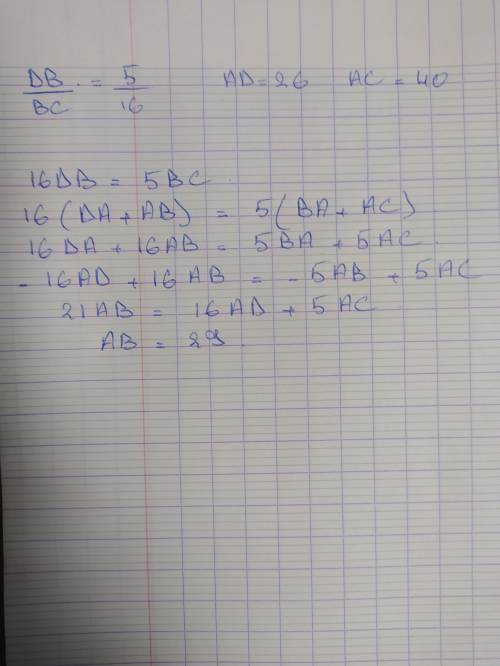 DB/BC = 5/16 AD = 26 AC = 40
16DB = 5BC
16(DA + AB) = 5(BA + AC)
16DA + 16AB = 5BA + 5AC
-16AD + 16AB = -5AB + 5AC
21AB = 16AD + 5AC
AB = 29